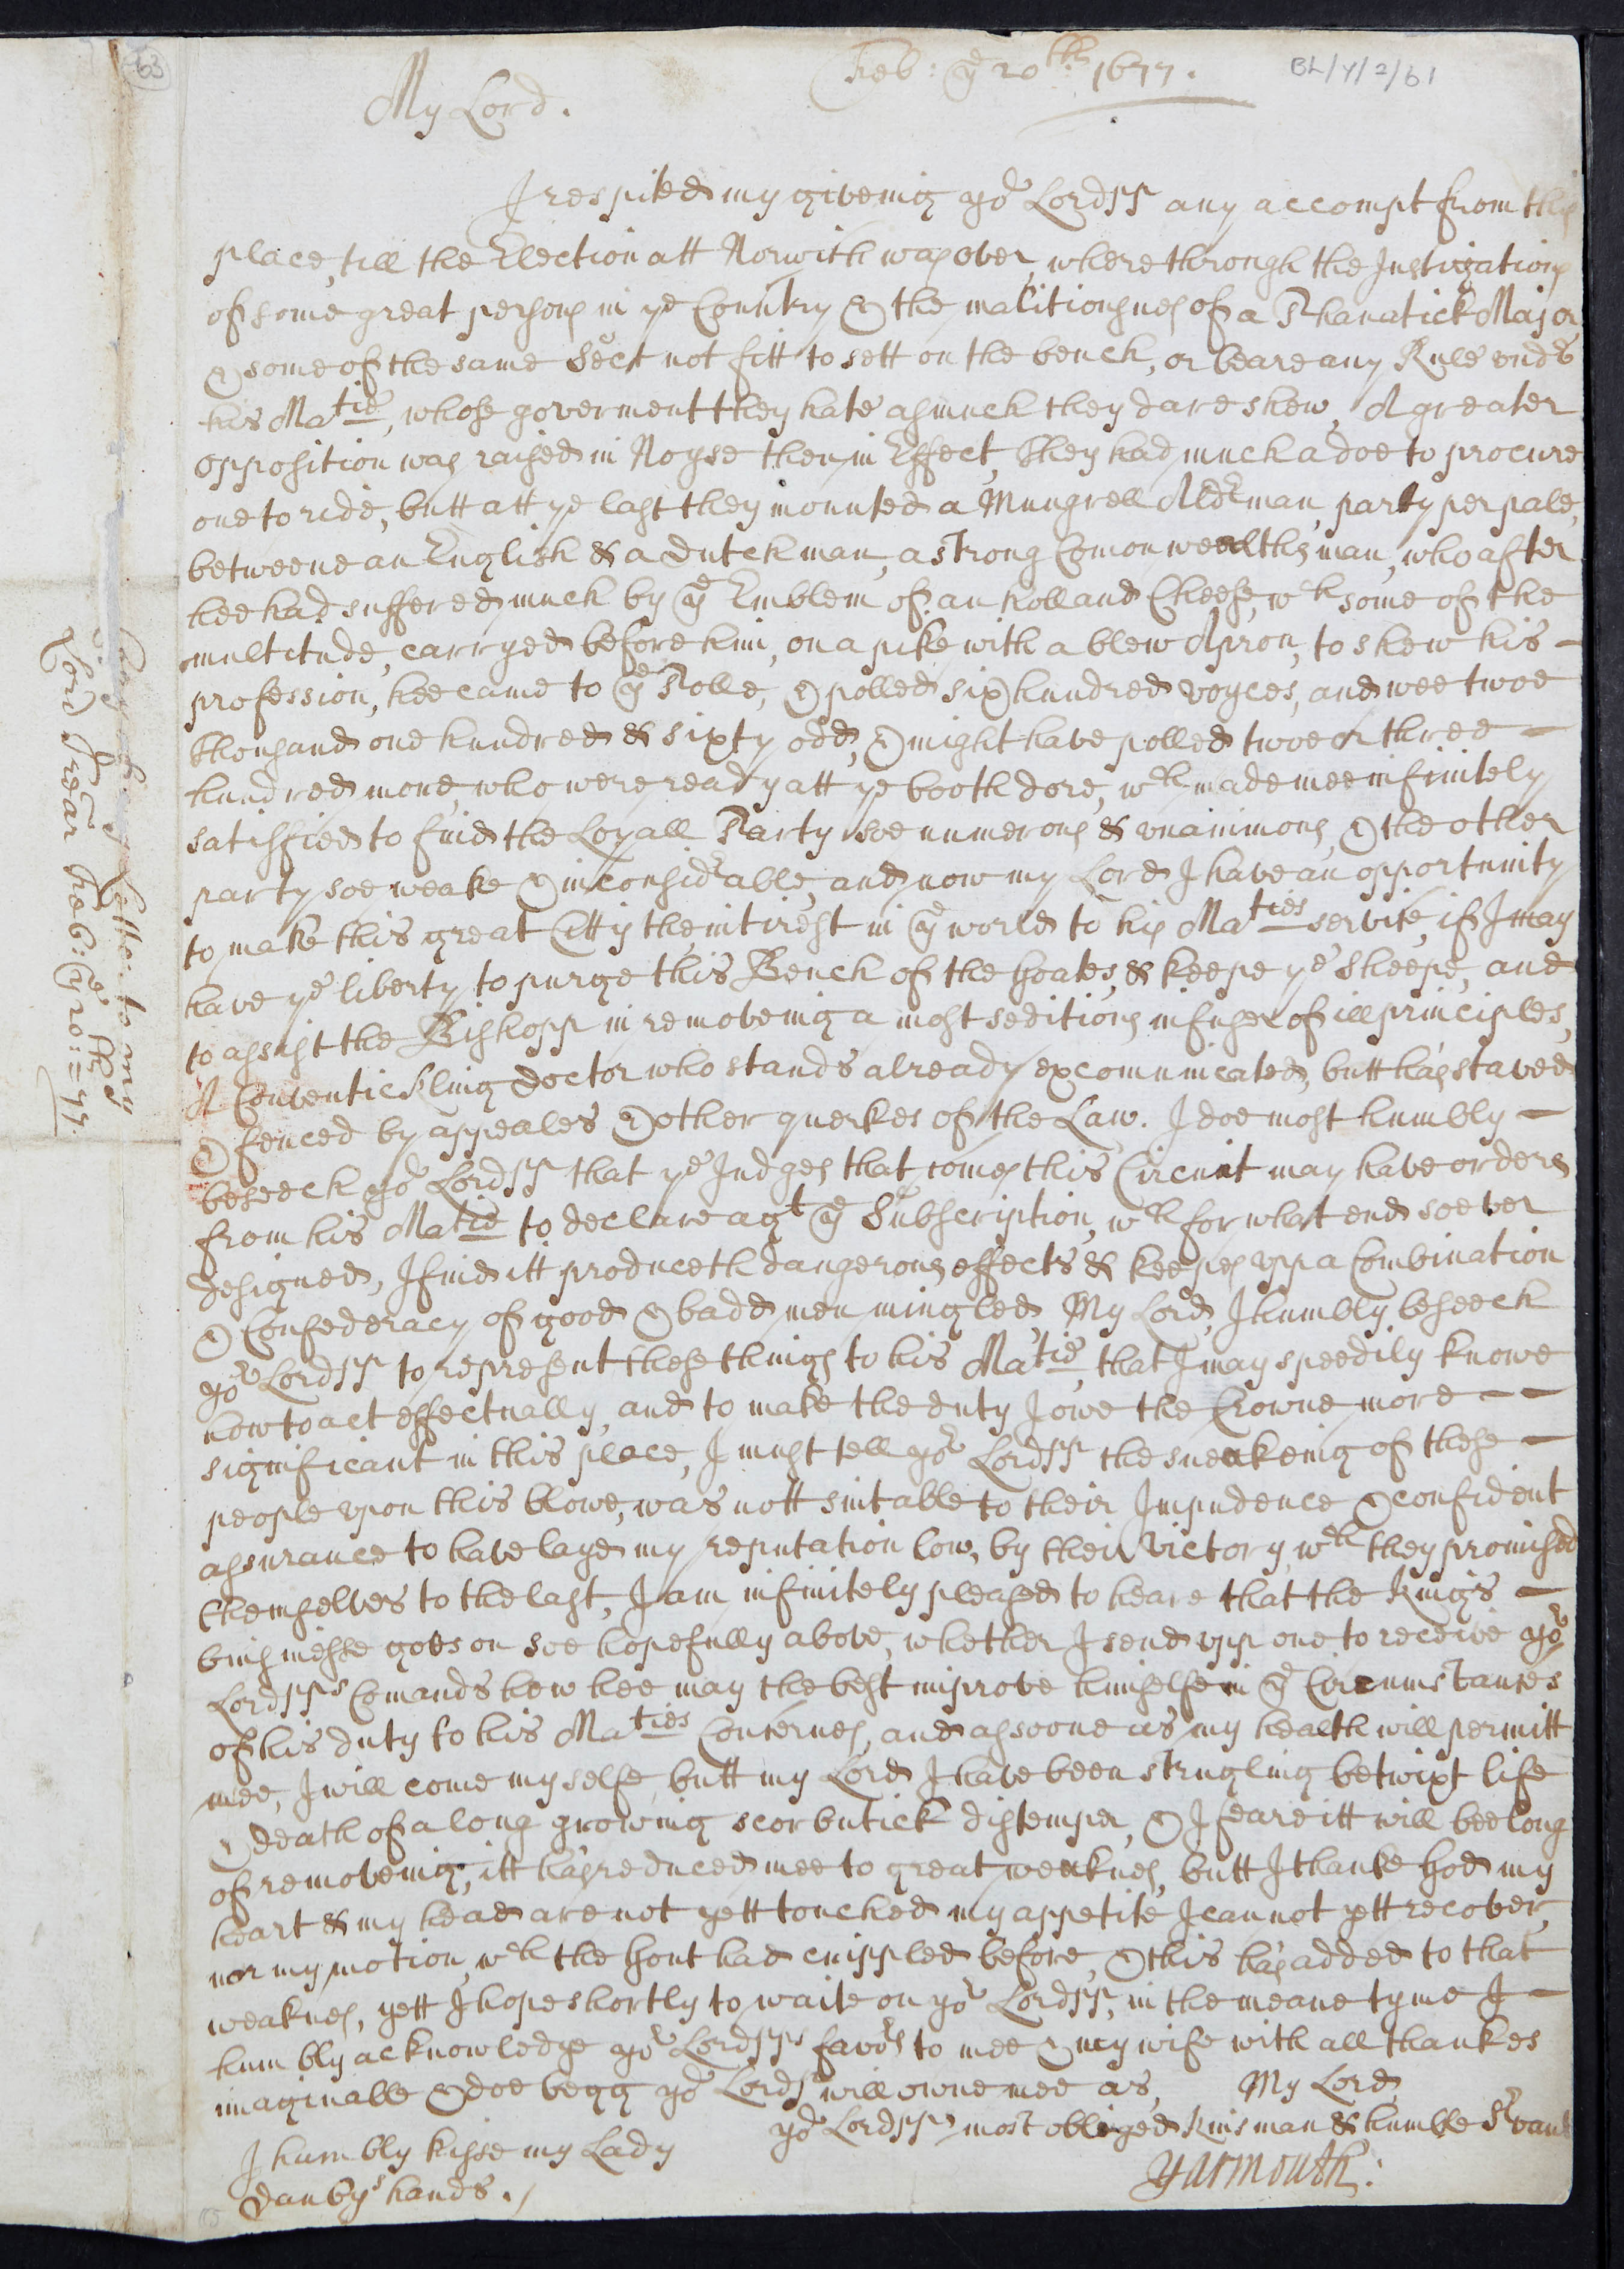 63
Feb: ye 20th 1677.
BL/Y/2/61
My Lord.
I respited my giveinig yor Lordspp any accompt from this
place, till the Election att Norwich was over, where through the Instigations
of some great persons in ye Country & the malitiousnes of a Phanatick Major
& some of the same Sect not fitt to sett on the bench, or beare any Rule undr
his Matie, whose goverment they hate asmuch they dare shew, A greater
opposition was raised in Noyse then in Effect, they had much adoe to procure
one to ride, butt att ye last they mounted a Mungrell Aldrman party per pale,
betweene an English & a dutch man, a strong Comonwealths man, who after
hee had suffered much by ye Emblem of an holland Cheese, wch some of the
multitude, carryed before him, on a pike with a blew Apron, to shew his -
profession, hee came to ye Polle, & polled six hundred voyces, and wee twoe
thousand one hundred & sixty odd, & might have polled twoe or three -
hundred more, who were ready att ye booth dore, wch made mee infinitely
satisfied to find the Loyall Party soe numerous & unanimous, & the other
party soe weake & inconsidrable, and now my Lord I have an opportunity
to make this great Citty the intirest in ye world to his Maties servise, if I may
have ye liberty to purge this Bench of the Goates, & keepe ye Sheepe, and
to assist the Bishopp in removeing a most seditious infuser of ill principles,
A Conventickling doctor who stands already excomunicated, butt has staved
& fenced by appeales & other querkes of the Law. I doe most humbly -
beseech yor Lordspp that ye Judges that comes this Circuit may have orders
from his Matie to declare agt ye Subscription, wch for what end soever
designed, I find itt produceth dangerous effects & keepes upp a Combination
& Confederacy of good & badd men mingled, My Lord, I humbly beseech
yor Lordspp to represent these things to his Matie, that I may speedily knowe
how to act effectually, and to make the duty I owe the Crowne more - -
significant in this place, I must tell yor Lordspp the sneakeing of these -
people upon this blowe, was nott suitable to their Impudence & confident
assurance to have layed my reputation low, by their Victory wch they promised
themselves to the last, I am infinitely pleased to heare that the Kings -
buisinesse goes on soe hopefully above, whether I send upp one to receive yor
Lordspps Comands how hee may the best improve himselfe in ye Circumstances
of his duty to his Maties Concernes, and assoone as my health will permitt
mee, I will come my selfe, butt my Lord I have been strugling betwixt life
& death of a long growing scorbutick distemper, & I feare itt will bee long
of removeing, itt has reduced mee to great weaknes, butt I thanke God my
heart & my head are not yett touched, my appetite I cannot yett recover,
nor my motion, wch the Gout had crippled before, & this has added to that
weaknes, yett I hope shortly to waite on yor Lordspp, in the meane tyme I -
humbly acknowledge yor Lordspps favors to mee & my wife with all thankes
imaginable & doe begg yor Lordsp will owne mee as, My Lord,
yor Lordspps most obliged kinsman & humble Srvant
Yarmouth:
I humbly kisse my Lady
Danbys hands.
Letter to my
Lord Trear Feb: ye 20th = 77.